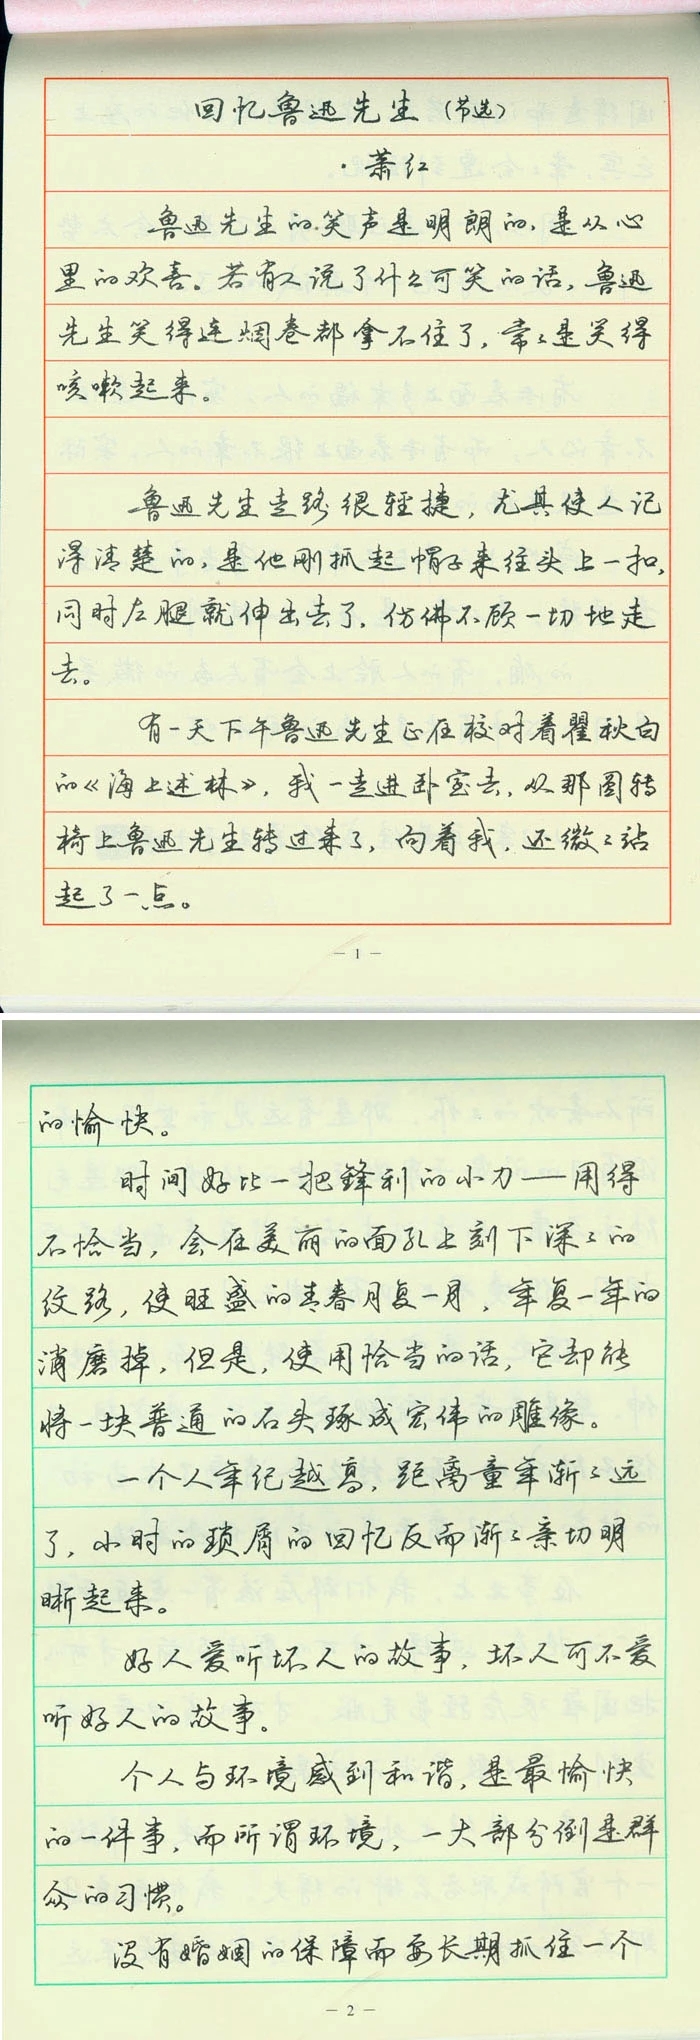 回忆鲁迅先生（节选）
·萧红
鲁迅先生的笑声是明朗的，是从心
里的欢喜。若有人说了什么可笑的话，鲁迅
先生笑得连烟卷都拿不住了，常々是笑得
咳嗽起来。
鲁迅先生走路很轻捷，尤其使人记
得清楚的，是他刚抓起帽子来往头上一扣，
同时左腿就伸出去了，仿佛不顾一切地走
去。
有一天下午鲁迅先生正在校对着瞿秋白
的《海上述林》，我一走进卧室去，从那圆转
椅上鲁迅先生转过来了，向着我，还微々站
起了一点。
— 1 —
的愉快。
时间好比一把锋利的小刀——用得
不恰当，会在美丽的面孔上刻下深々的
纹路，使旺盛的青春月复一月，年复一年的
消磨掉，但是，使用恰当的话，它却能
将一块普通的石头琢成宏伟的雕像。
一个人年纪越高，距离童年渐々远
了，小时的琐屑的回忆反而渐々亲切明
晰起来。
好人爱听坏人的故事，坏人可不爱
听好人的故事。
个人与环境感到和谐，是最愉快
的一件事，而所谓环境，一大部分倒是群
众的习惯。
没有婚姻的保障而要长期抓住一个
— 2 —